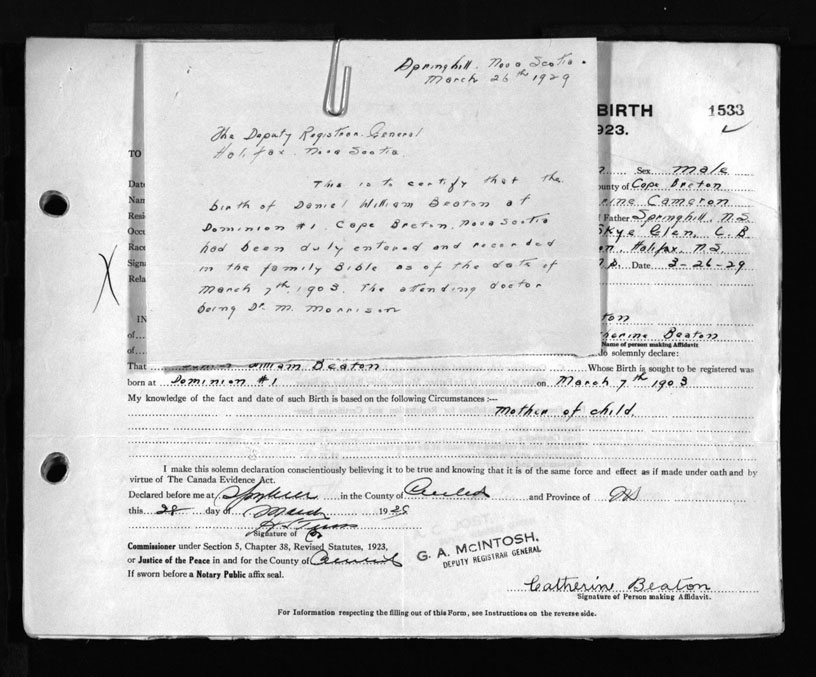 Springhill. Nova Scotia.
March 26th 1929
The Deputy Registrar General
Halifax. Nova Scotia.
This is to certify that the
birth of Daniel William Beaton at
Dominion #1. Cape Breton, Nova Scotia
had been duly entered and recorded
in the family Bible as of the date of
March 7th 1903. The attending doctor
being Dr. M. Morrison
BIRTH 1533
923.
TO
Sex male
Date
ounty of Cape Breton
Nam
rine Cameron
Resi
Father Springhill, N.S.
Occu
Skye Glen, C.B.
Race
on, Halifax, N.S.
Signa
Date 3-26-29
Rela
IN
ton
of
therine Beaton
Name of person making Affidavit
of
do solemnly declare:
That William Beaton Whose Birth is sought to be registered was
born at Dominion #1 on March 7th 1903
My knowledge of the fact and date of such Birth is based on the following Circumstances :—
Mother of child.
I make this solemn declaration conscientiously believing it to be true and knowing that it is of the same force and effect as if made under oath and by
virtue of The Canada Evidence Act.
Declared before me at in the County of and Province of NS
this 28 day of March 1929
Signature of
Commissioner under Section 5, Chapter 38, Revised Statutes, 1923,
or Justice of the Peace in and for the County of
If sworn before a Notary Public affix seal.
G. A. McINTOSH,
DEPUTY REGISTRAR GENERAL
Catherine Beaton
Signature of Person making Affidavit.
For Information respecting the filling out of this Form, see Instructions on the reverse side.